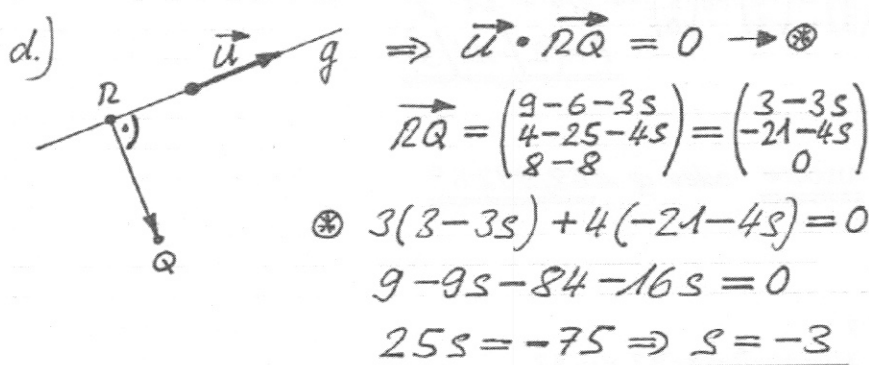 d.) R u⃗ g ⇒ u⃗ • RQ⃗ = 0 → ⊛
RQ⃗ = (9-6-3s, 4-25-4s, 8-8) = (3-3s, -21-4s, 0)
Q
⊛ 3(3-3s) + 4(-21-4s) = 0
9-9s-84-16s = 0
25s = -75 ⇒ s = -3